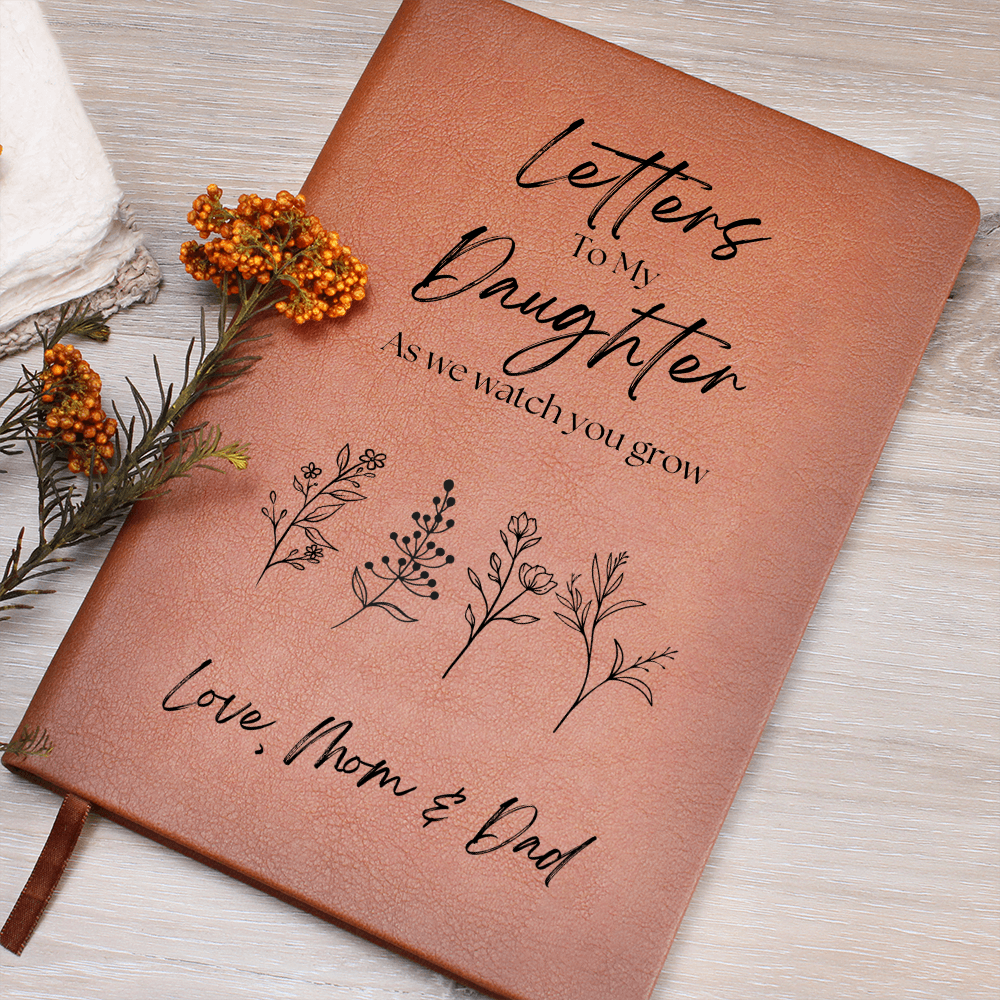 Letters
To My
Daughter
As we watch you grow
Love, Mom & Dad